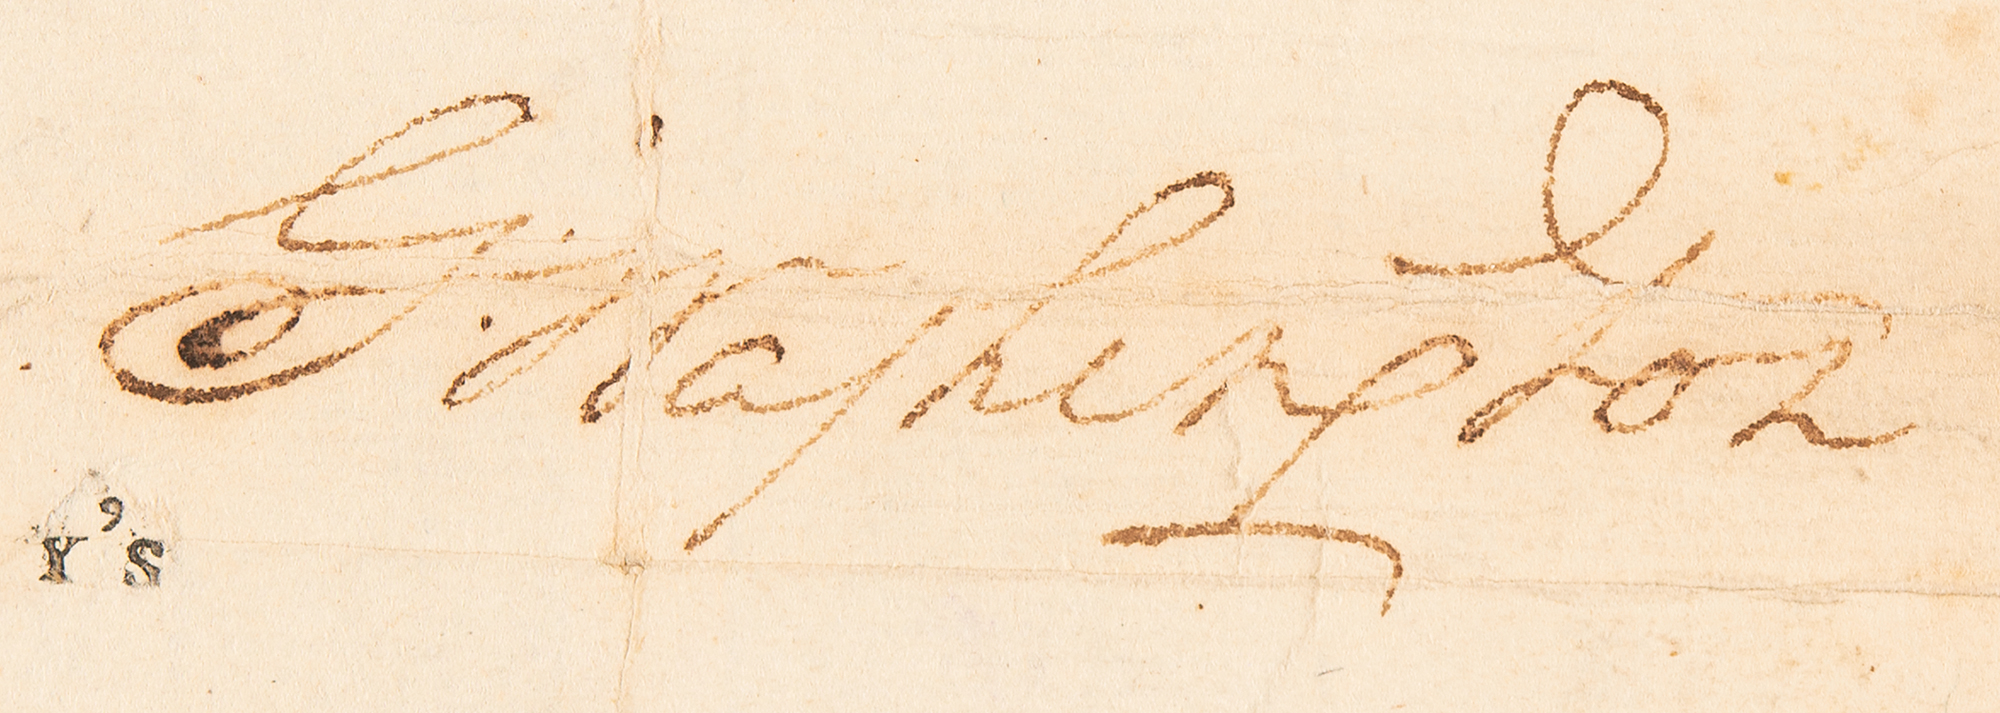 G:Washington
Y'S